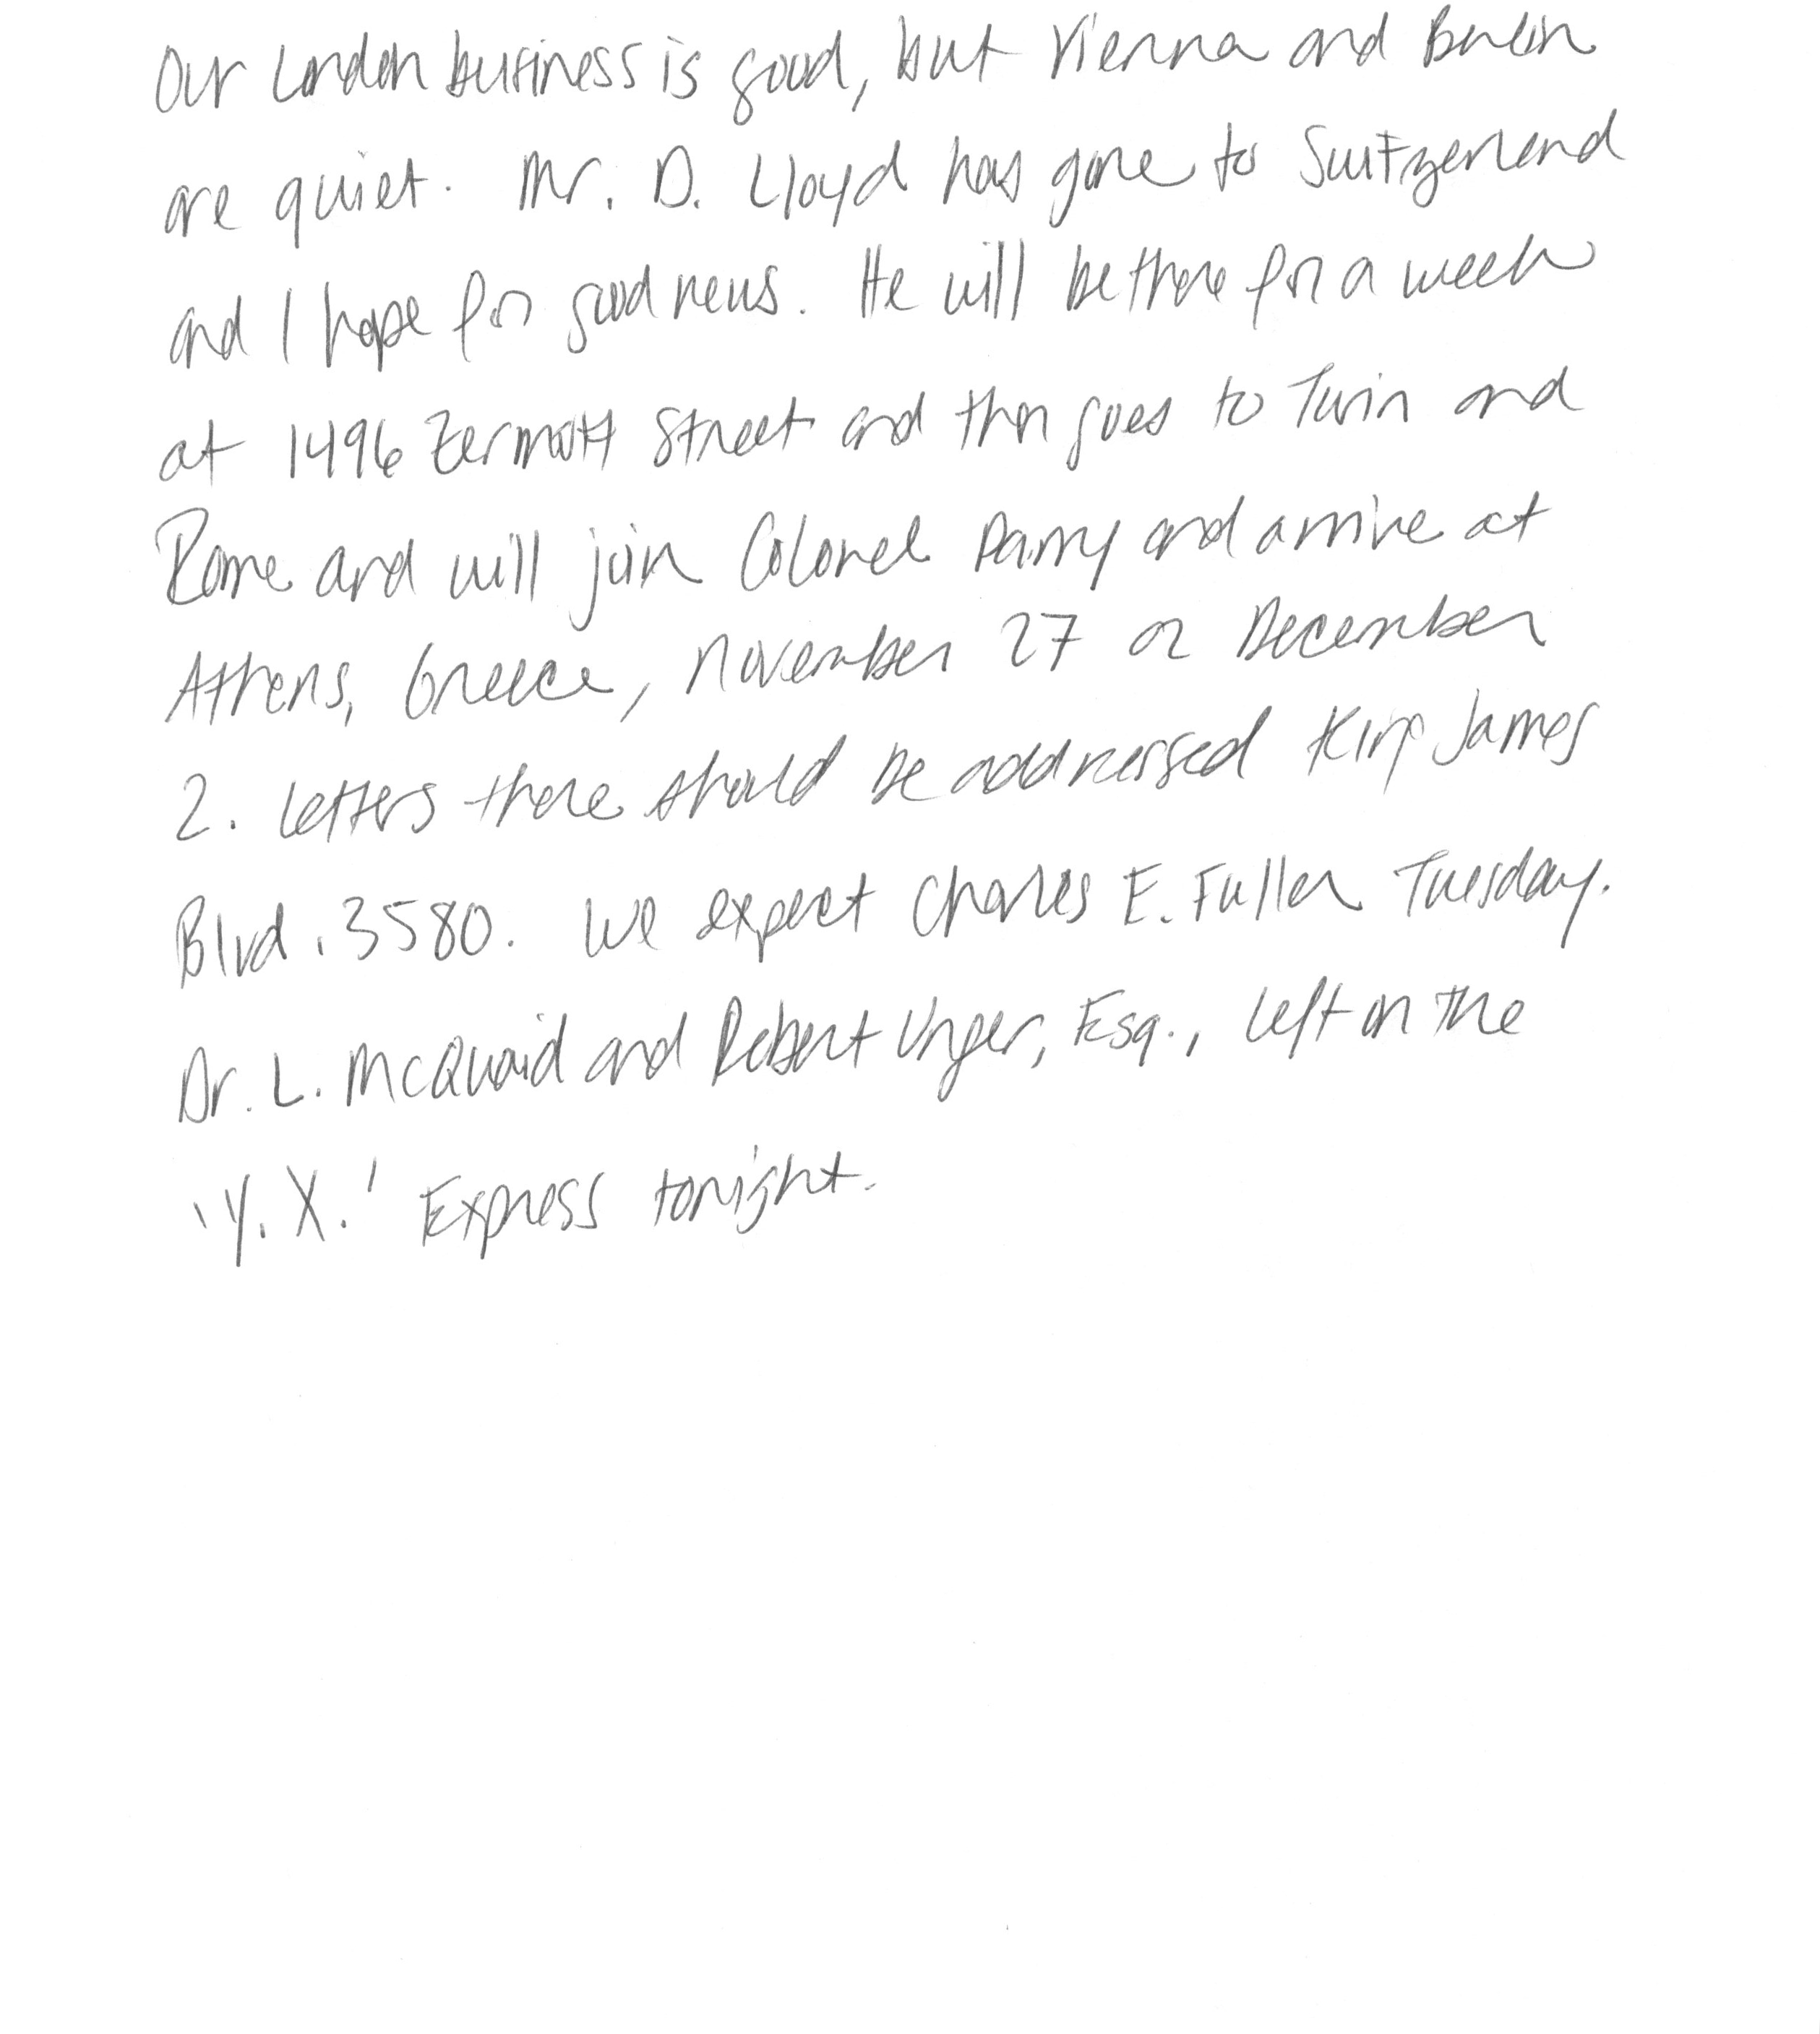 Our London business is good, but Vienna and Berlin
are quiet. Mr. D. Lloyd has gone to Switzerland
and I hope for good news. He will be there for a week
at 1496 Zermott Street and then goes to Turin and
Rome and will join Colonel Parry and arrive at
Athens, Greece, November 27 or December
2. Letters there should be addressed King James
Blvd. 3580. We expect Charles E. Fuller Tuesday.
Dr. L. McQuaid and Robert Unger, Esq., left on the
'Y. X.' Express tonight.